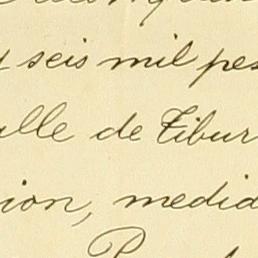 y seis mil pes
alle de Tibur
ion, medid